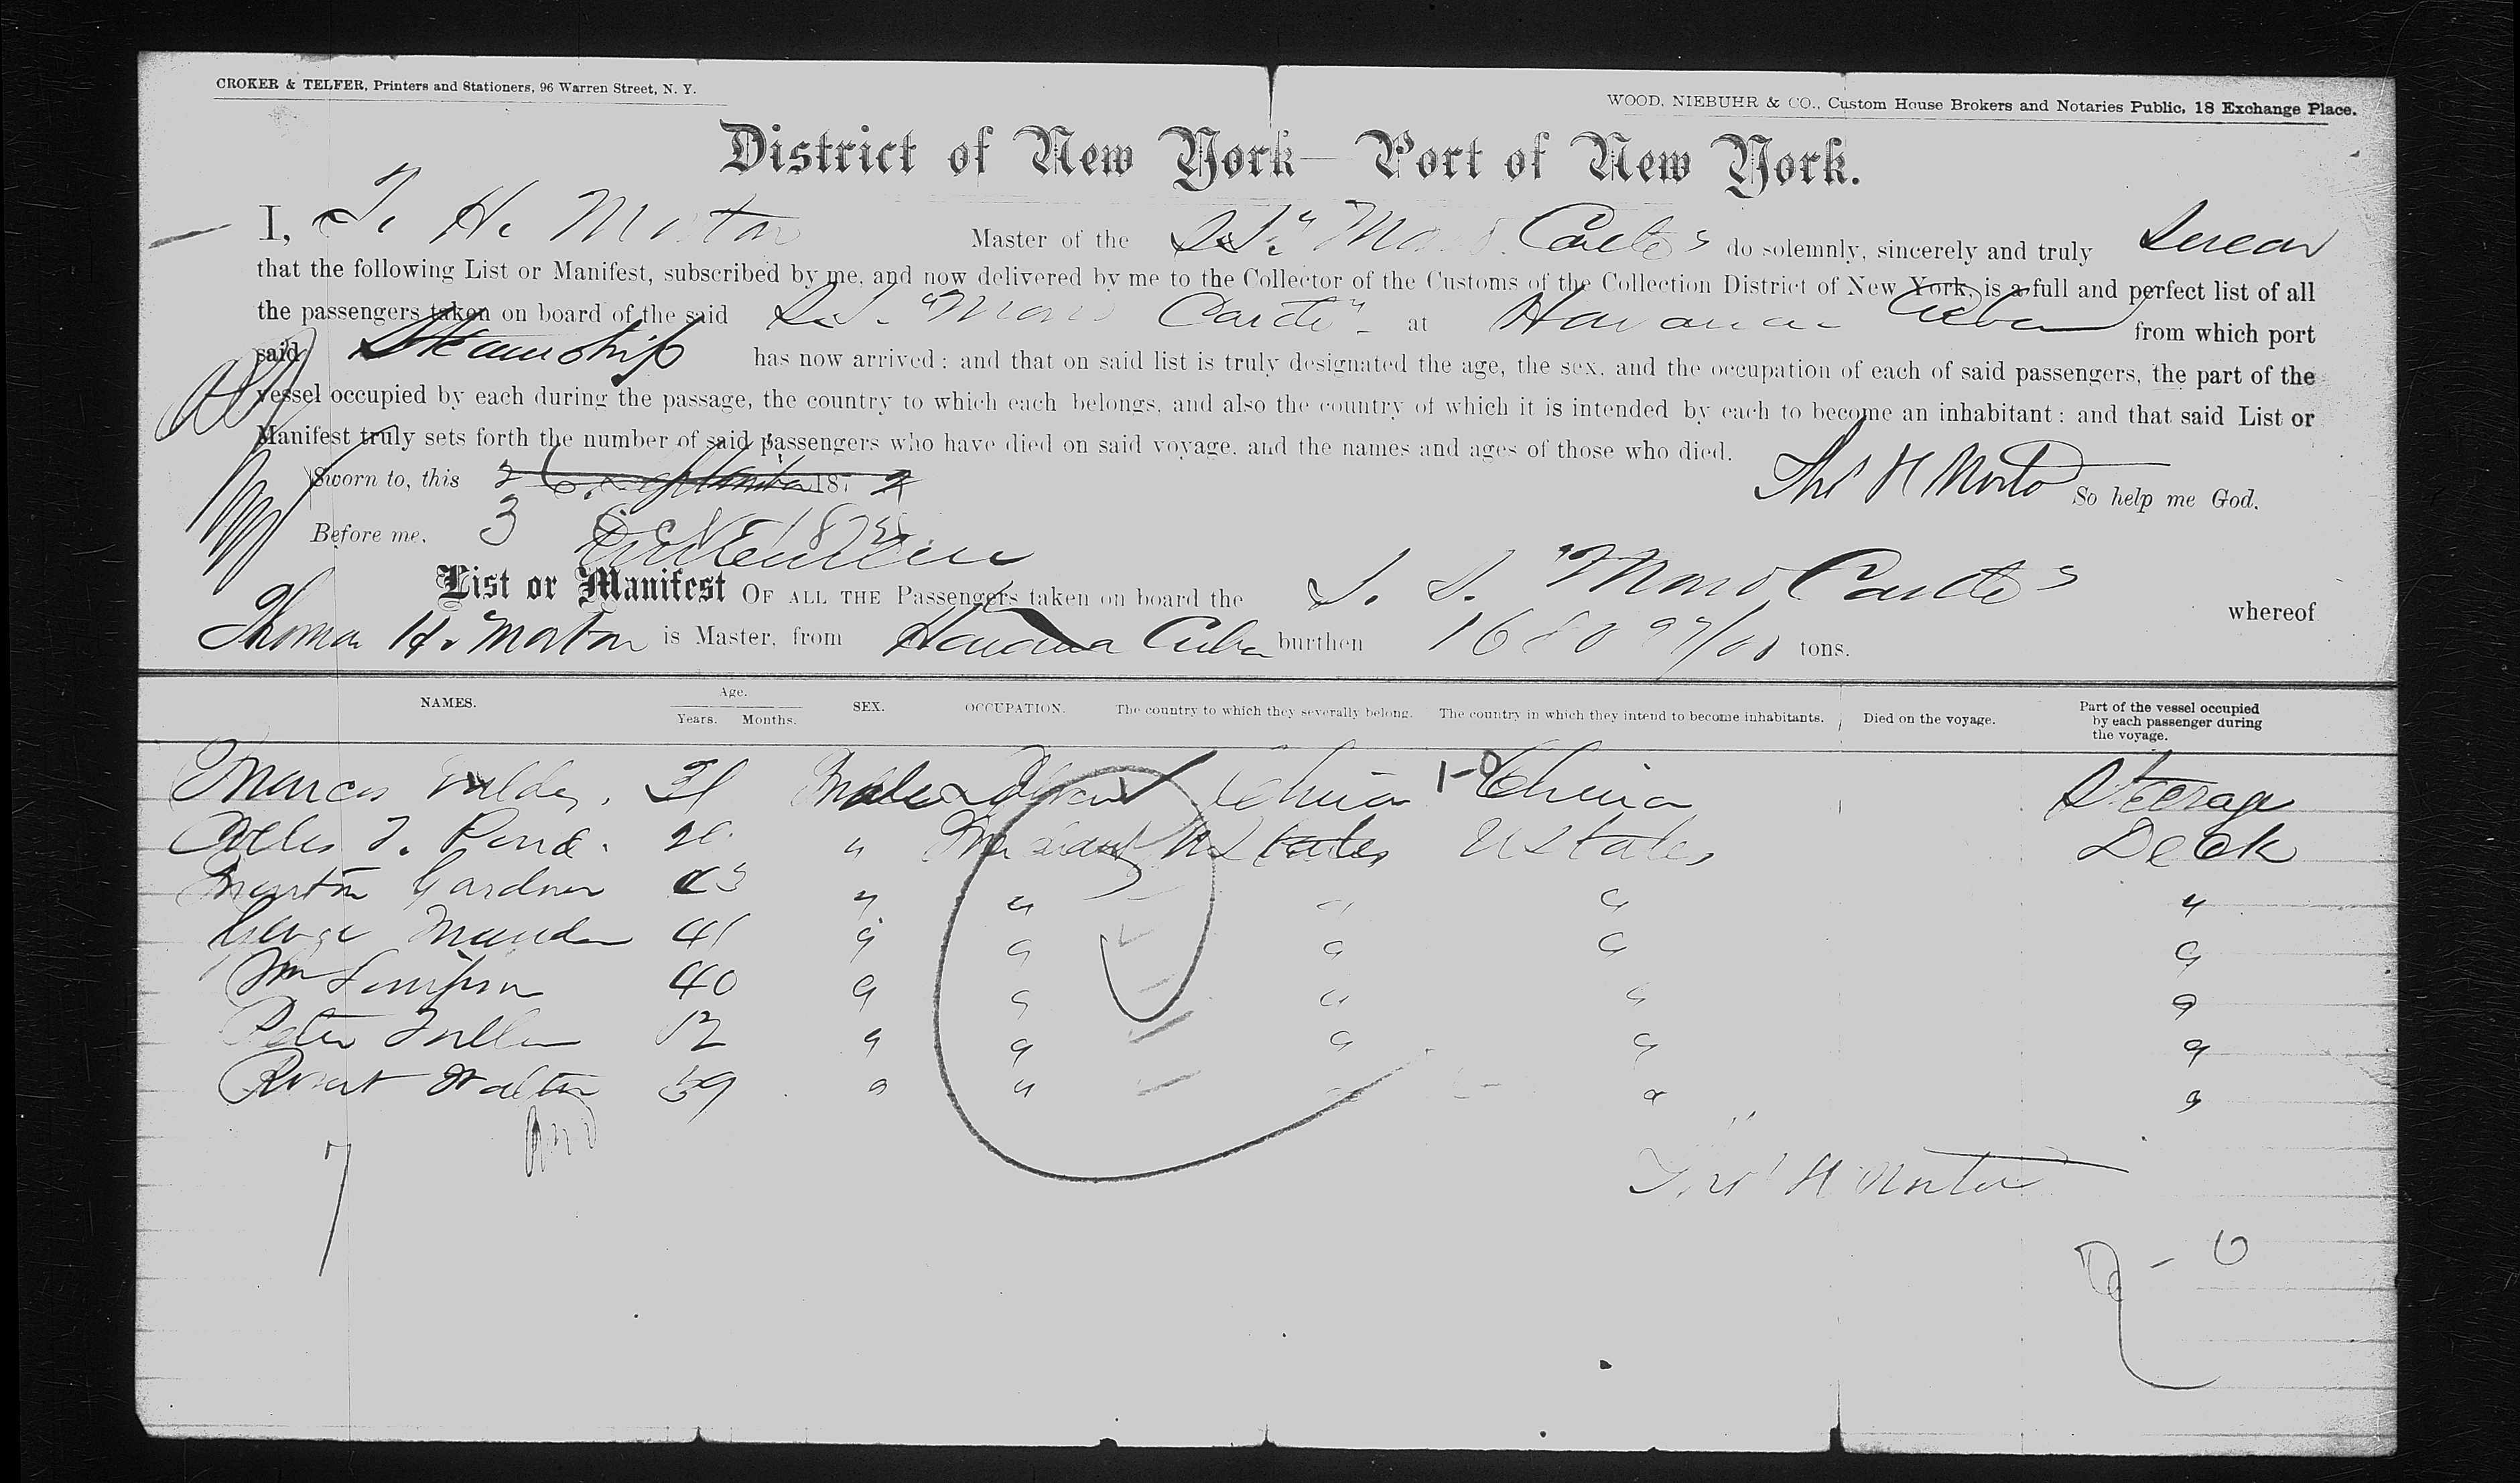 CROKER & TELFER, Printers and Stationers, 96 Warren Street, N. Y.
WOOD, NIEBUHR & CO., Custom House Brokers and Notaries Public, 18 Exchange Place.
District of New York — Port of New York.
I, T. H. Morton Master of the S.S. "Moro Castle" do solemnly, sincerely and truly swear
that the following List or Manifest, subscribed by me, and now delivered by me to the Collector of the Customs of the Collection District of New York, is a full and perfect list of all
the passengers taken on board of the said S.S. "Moro Castle" at Havana Cuba from which port
said Steamship has now arrived: and that on said list is truly designated the age, the sex, and the occupation of each of said passengers, the part of the
vessel occupied by each during the passage, the country to which each belongs, and also the country of which it is intended by each to become an inhabitant: and that said List or
Manifest truly sets forth the number of said passengers who have died on said voyage, and the names and ages of those who died.
Sworn to, this 26 September 187 Thos H Morton So help me God.
Before me, 3
List or Manifest OF ALL THE Passengers taken on board the S. S. "Moro Castle" whereof
Thomas H. Morton is Master, from Havana Cuba burthen 1680 97/00 tons.
NAMES. Age. Years. Months. SEX. OCCUPATION. The country to which they severally belong. The country in which they intend to become inhabitants. Died on the voyage. Part of the vessel occupied by each passenger during the voyage.
Marcos Valdez. Male China 1-0 China Steerage
T. Pond. " U States U States Deck
Gardner " " " " "
George 41 " " " " "
Wm Simpson 40 " " " " "
Peter " " " " "
Robert Walton 59 " " " " "
7
Thos H Morton